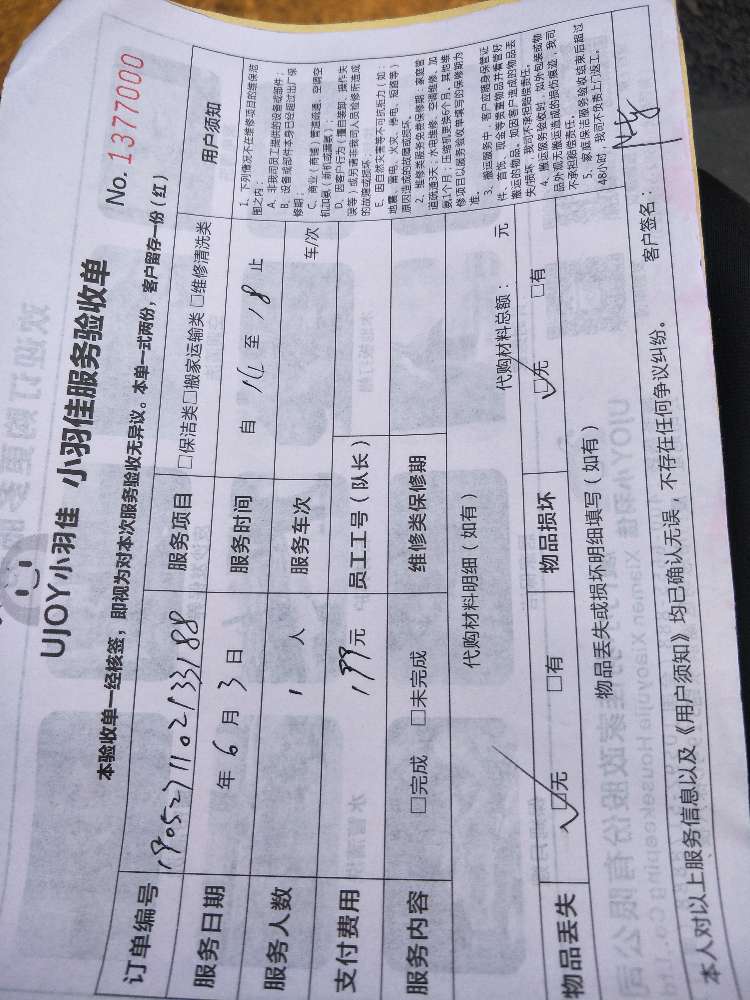 UJOY小羽佳 小羽佳服务验收单
No. 1377000
本验收单一经核签，即视为对本次服务验收无异议。本单一式两份，客户留存一份（红）
订单编号 1905271102133188 服务项目 □保洁类□搬家运输类 □维修清洗类
服务日期 年 6 月 3 日 服务时间 自 14 至 18 止
服务人数 1 人 服务车次 车/次
支付费用 199元 员工工号（队长）
服务内容 □完成 □未完成 维修类保修期
代购材料明细（如有） 代购材料总额： 元
物品丢失 ☑无 □有 物品损坏 ☑无 □有
物品丢失或损坏明细填写（如有）
用户须知
1、下列情况不在维修项目的维保范
围之内：
A、非我司员工提供的设备或部件；
B、设备或部件本身已经超过出厂保
修期；
C、商业（商铺）管道疏通、空调空
机加氟（新机或漏氟）；
D、因客户行为（擅自装卸、操作失
误等）或另请非我司人员检修所造成
的故障或损坏；
E、因自然灾害等不可抗拒力（如：
地震、雷电、火灾、停电、短路等）
原因造成的故障或损坏。
2、维修类服务免费保修期：家庭管
道疏通3天；水电维修、空调维修、加
氟1个月；压缩机更换6个月。其他维
修项目以服务验收单填写的保修期为
准。
3、搬运服务中，客户应随身保管证
件、首饰、现金等贵重物品并看管好
搬运的物品。如因客户造成的物品丢
失/损坏，我司不承担赔偿责任。
4、搬运服务验收时，如外包装或物
品外观无搬运造成的损伤痕迹，我司
不承担赔偿责任。
5、家庭保洁服务验收结束后超过
48小时，我司不负责上门返工。
本人对以上服务信息以及《用户须知》均已确认无误，不存在任何争议纠纷。 客户签名：